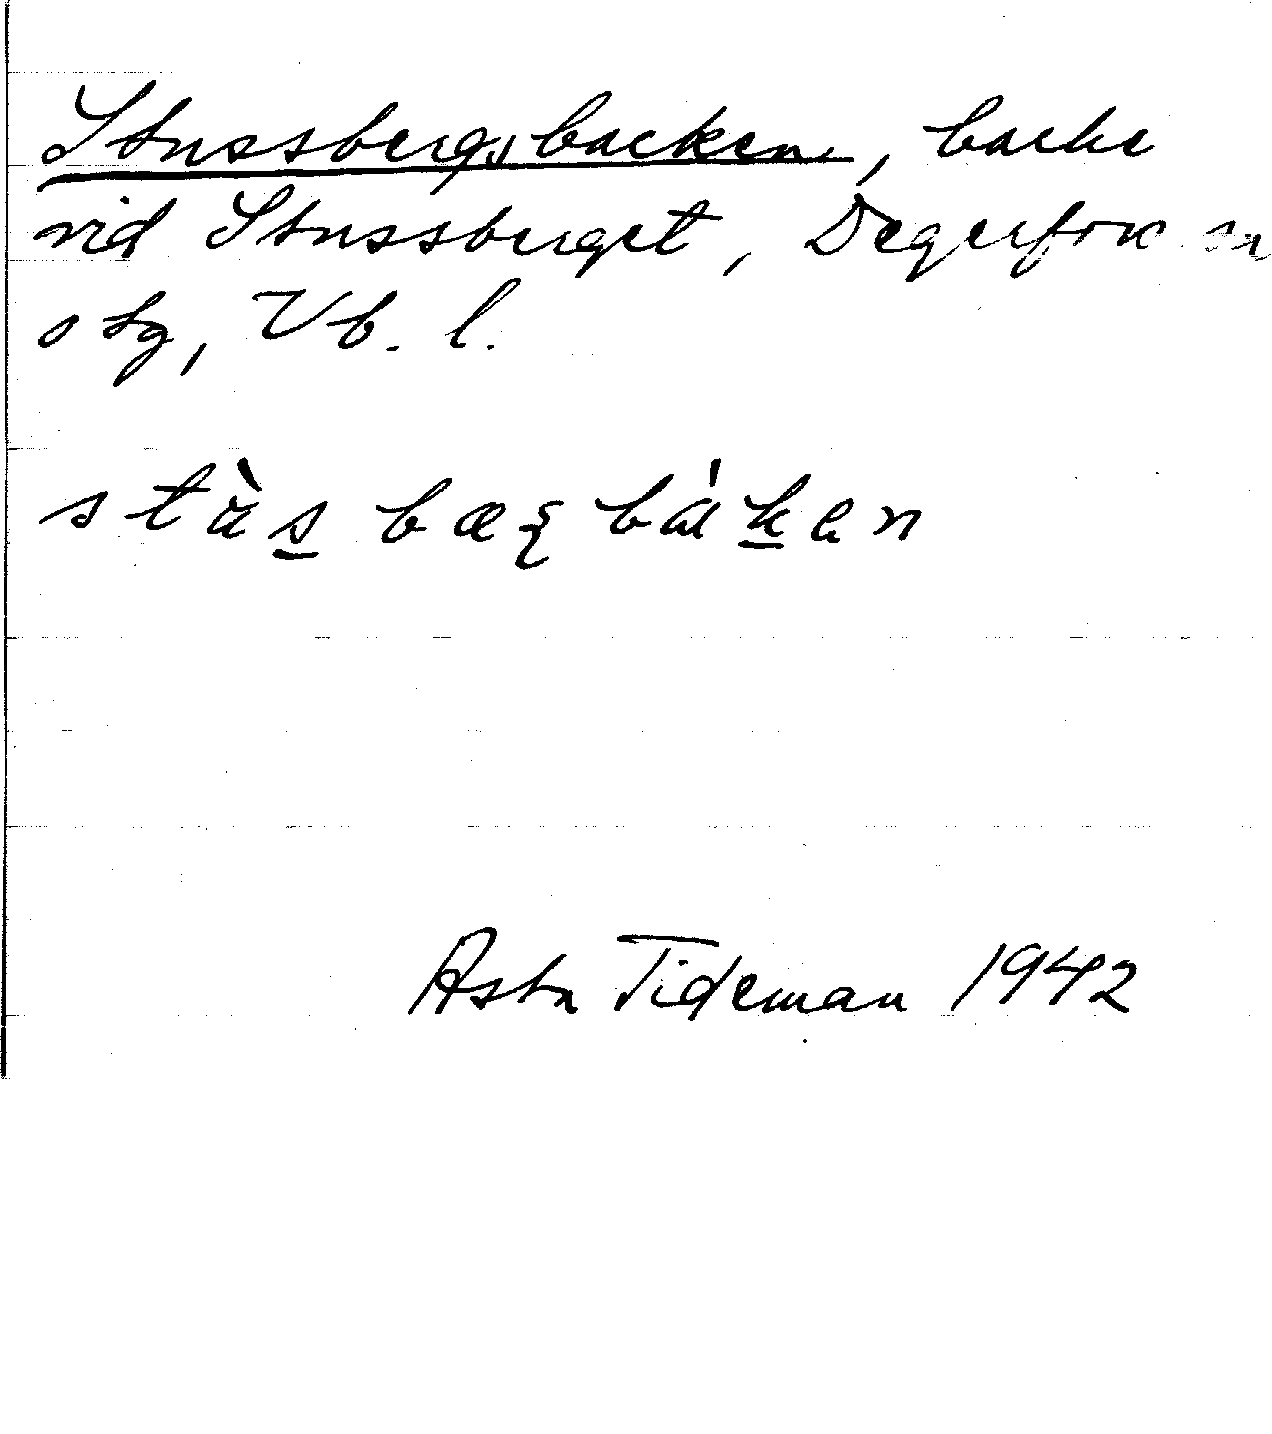 Stussbergsbacken, backe
vid Stussberget, Degerfors sn
sbg, Vb. l.
stàs bæʂ báken
Asta Tideman 1942